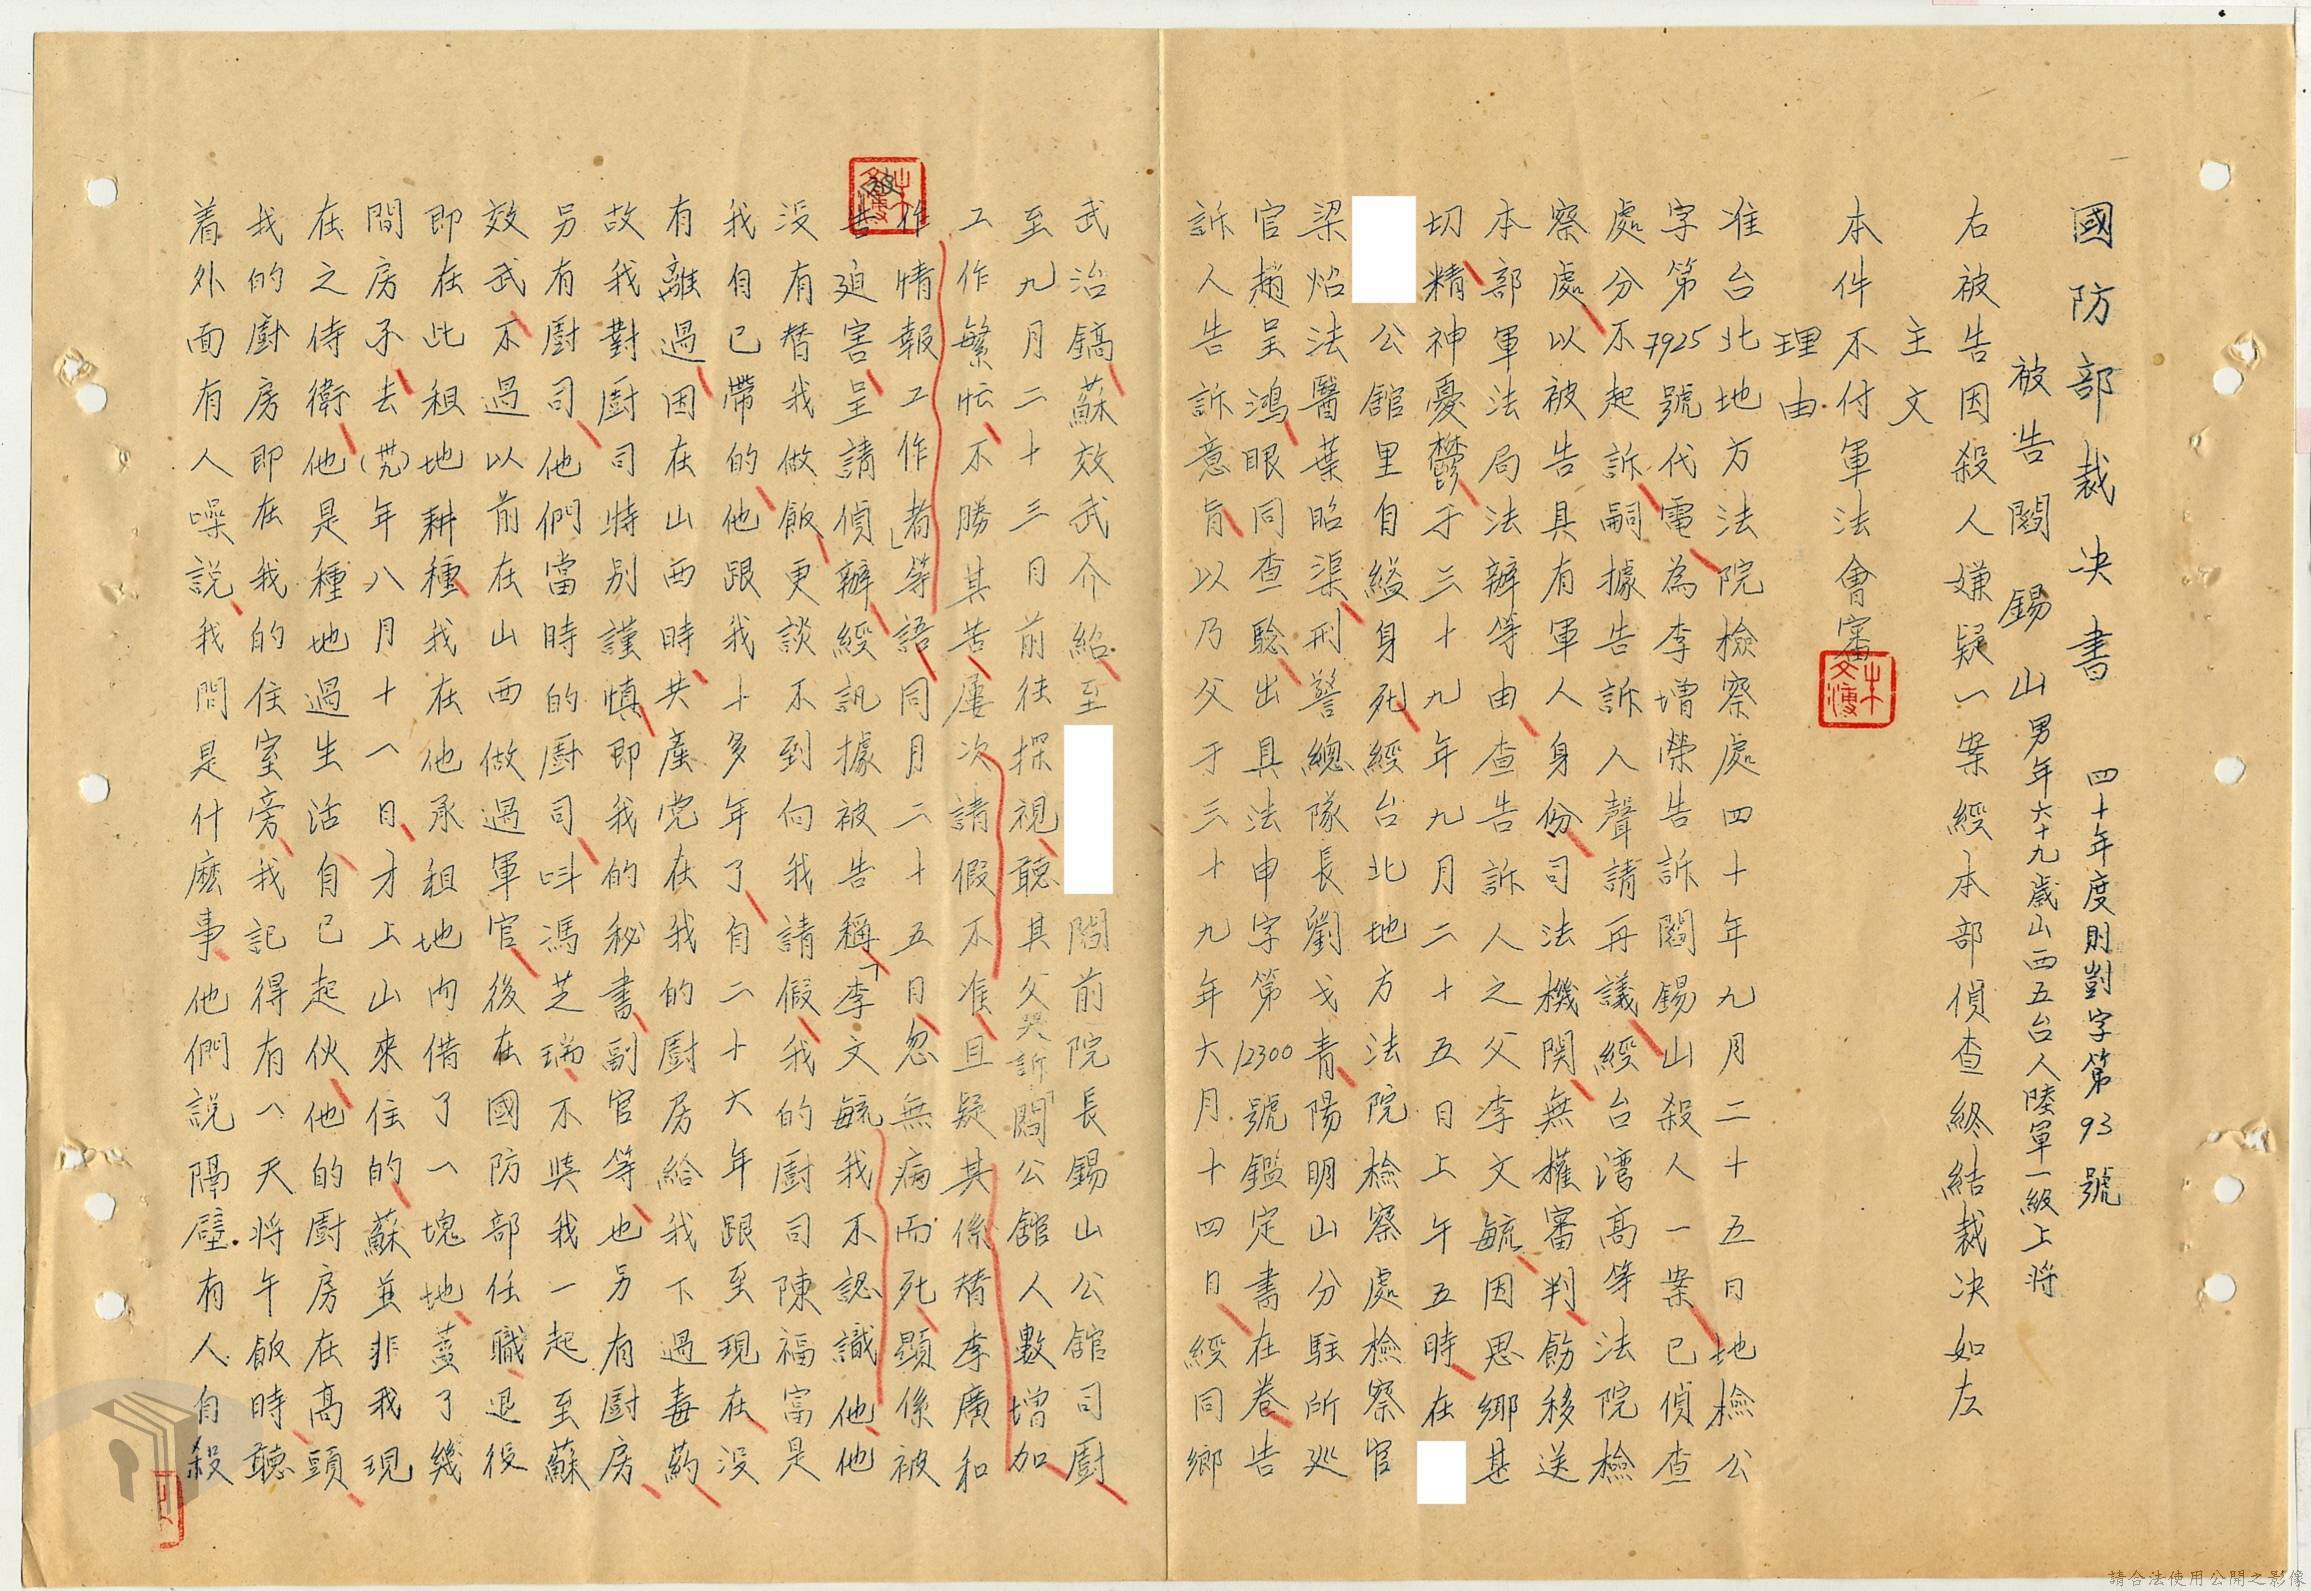 國防部裁決書　四十年度則對字第93號
被告閻錫山男年六十九歲山西五台人陸軍一級上將
右被告因殺人嫌疑一案經本部偵查終結裁決如左
主文
本件不付軍法會審
理由
准台北地方法院檢察處四十年九月二十五日地檢公
字第7925號代電為李增榮告訴閻錫山殺人一案已偵查
處分不起訴嗣據告訴人聲請再議經台灣高等法院檢
察處以被告具有軍人身份司法機関無權審判飭移送
本部軍法局法辦等由查告訴人之父李文毓因思鄉甚
切精神憂鬱于三十九年九月二十五日上午五時在
公舘里自縊身死經台北地方法院檢察處檢察官
梁焰法醫葉昭渠刑警總隊長劉戈青陽明山分駐所巡
官趙呈鴻眼同查驗出具法申字第12300號鑑定書在卷告
訴人告訴意旨以乃父于三十九年六月十四日經同鄉
武治鎬蘇效武介紹至
閻前院長錫山公舘司廚
至九月二十三日前往探視聽其父哭訴「閻公舘人數增加
工作繁忙不勝其苦屢次請假不准且疑其係替李廣和
作情報工作者」等語同月二十五日忽無病而死顯係被
被告迫害呈請偵辦經訊據被告稱「李文毓我不認識他他
沒有替我做飯更談不到向我請假我的廚司陳福富是
我自已帶的他跟我十多年了自二十六年跟至現在沒
有離過因在山西時共產党在我的廚房給我下過毒葯
故我對廚司特別謹慎即我的秘書副官等也另有廚房
另有廚司他們當時的廚司叫馮芝瑞不與我一起至蘇
效武不過以前在山西做過軍官後在國防部任職退役
即在此租地耕種我在他承租地內借了一塊地蓋了幾
間房子去(卅九)年八月十一日才上山來住的蘇並非我現
在之侍衛他是種地過生活自已起伙他的廚房在高頭
我的廚房即在我的住室旁我記得有一天將午飯時聽
着外面有人噪說我問是什麽事他們說隔壁有人自殺
請合法使用公開之影像